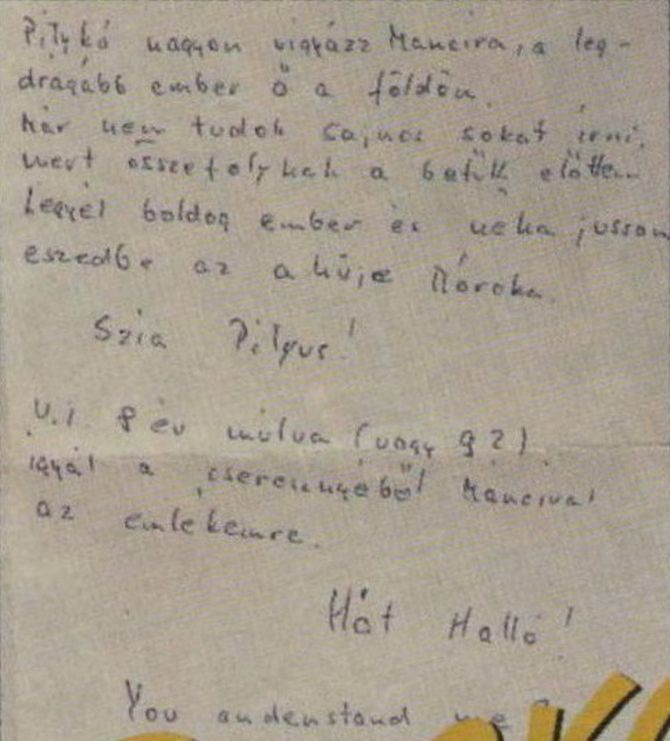 Pitykó nagyon vigyázz Mancira, a leg-
drágább ember ő a földön.
Már nem tudok sajnos sokat írni,
mert összefolynak a betűk előttem.
Legyél boldog ember és néha jusson
eszedbe az a hüje Móroka.
Szia Pityus!
U.i. 8 év múlva (vagy 9?)
igyál a "cseresznyéből" Mancival
az emlékemre.
Hát Halló!
You understand me?